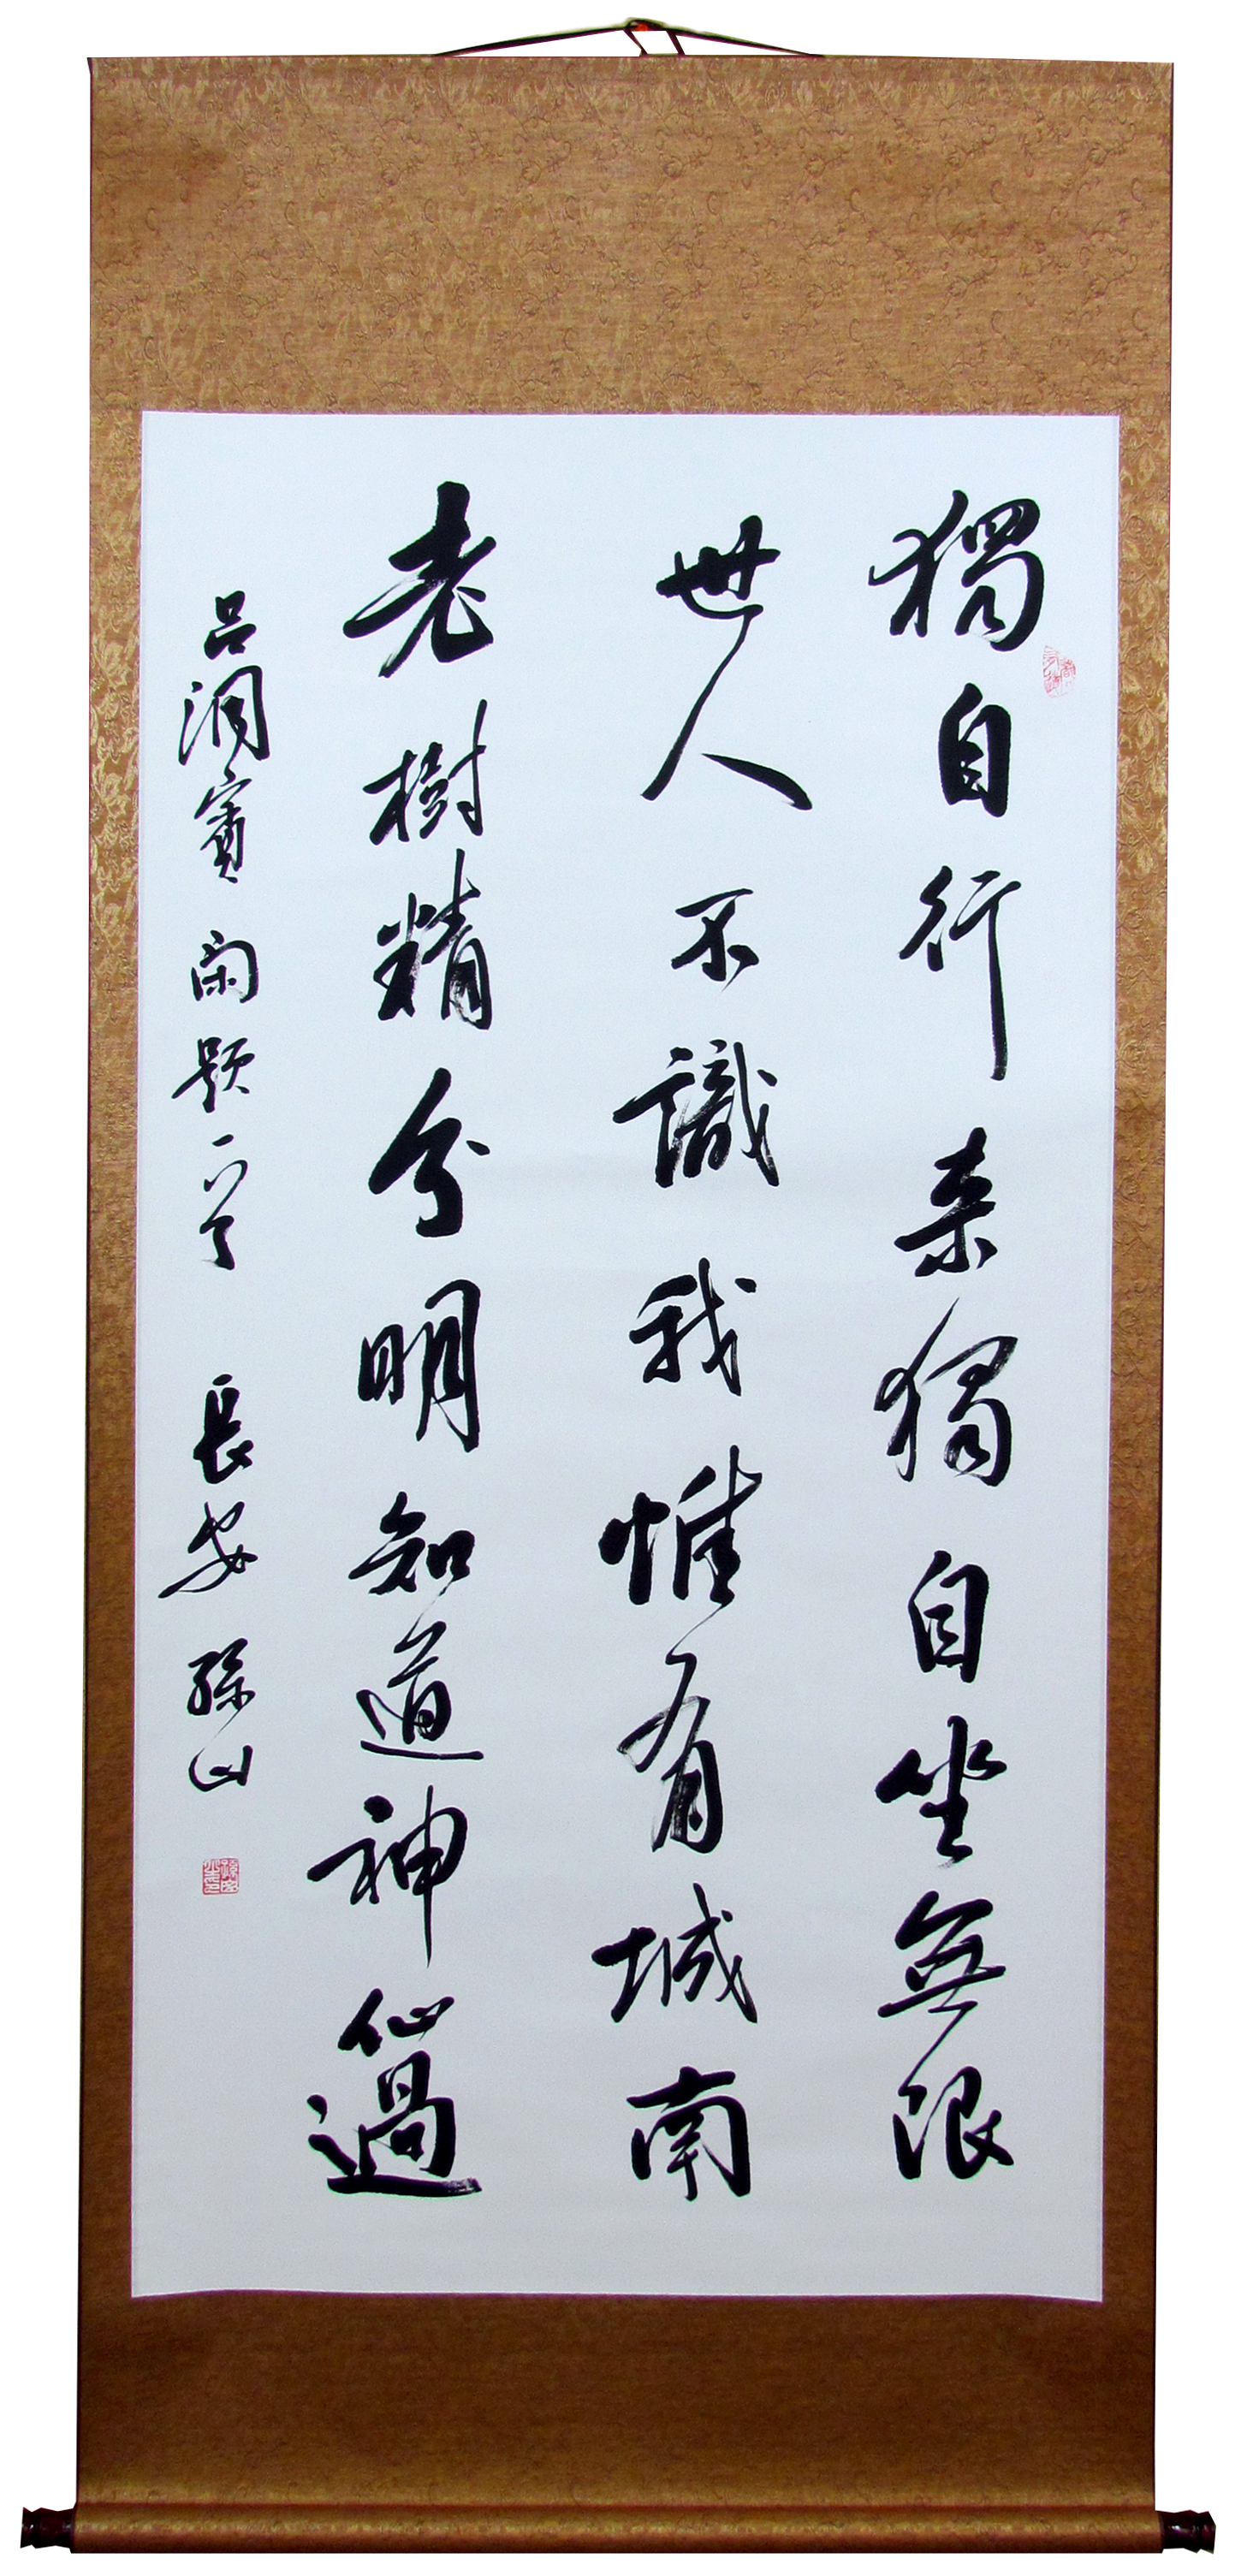 獨自行来獨自坐無限
世人不識我惟有城南
老樹精分明知道神仙過
吕洞賓 闲题一首 長安 孫山